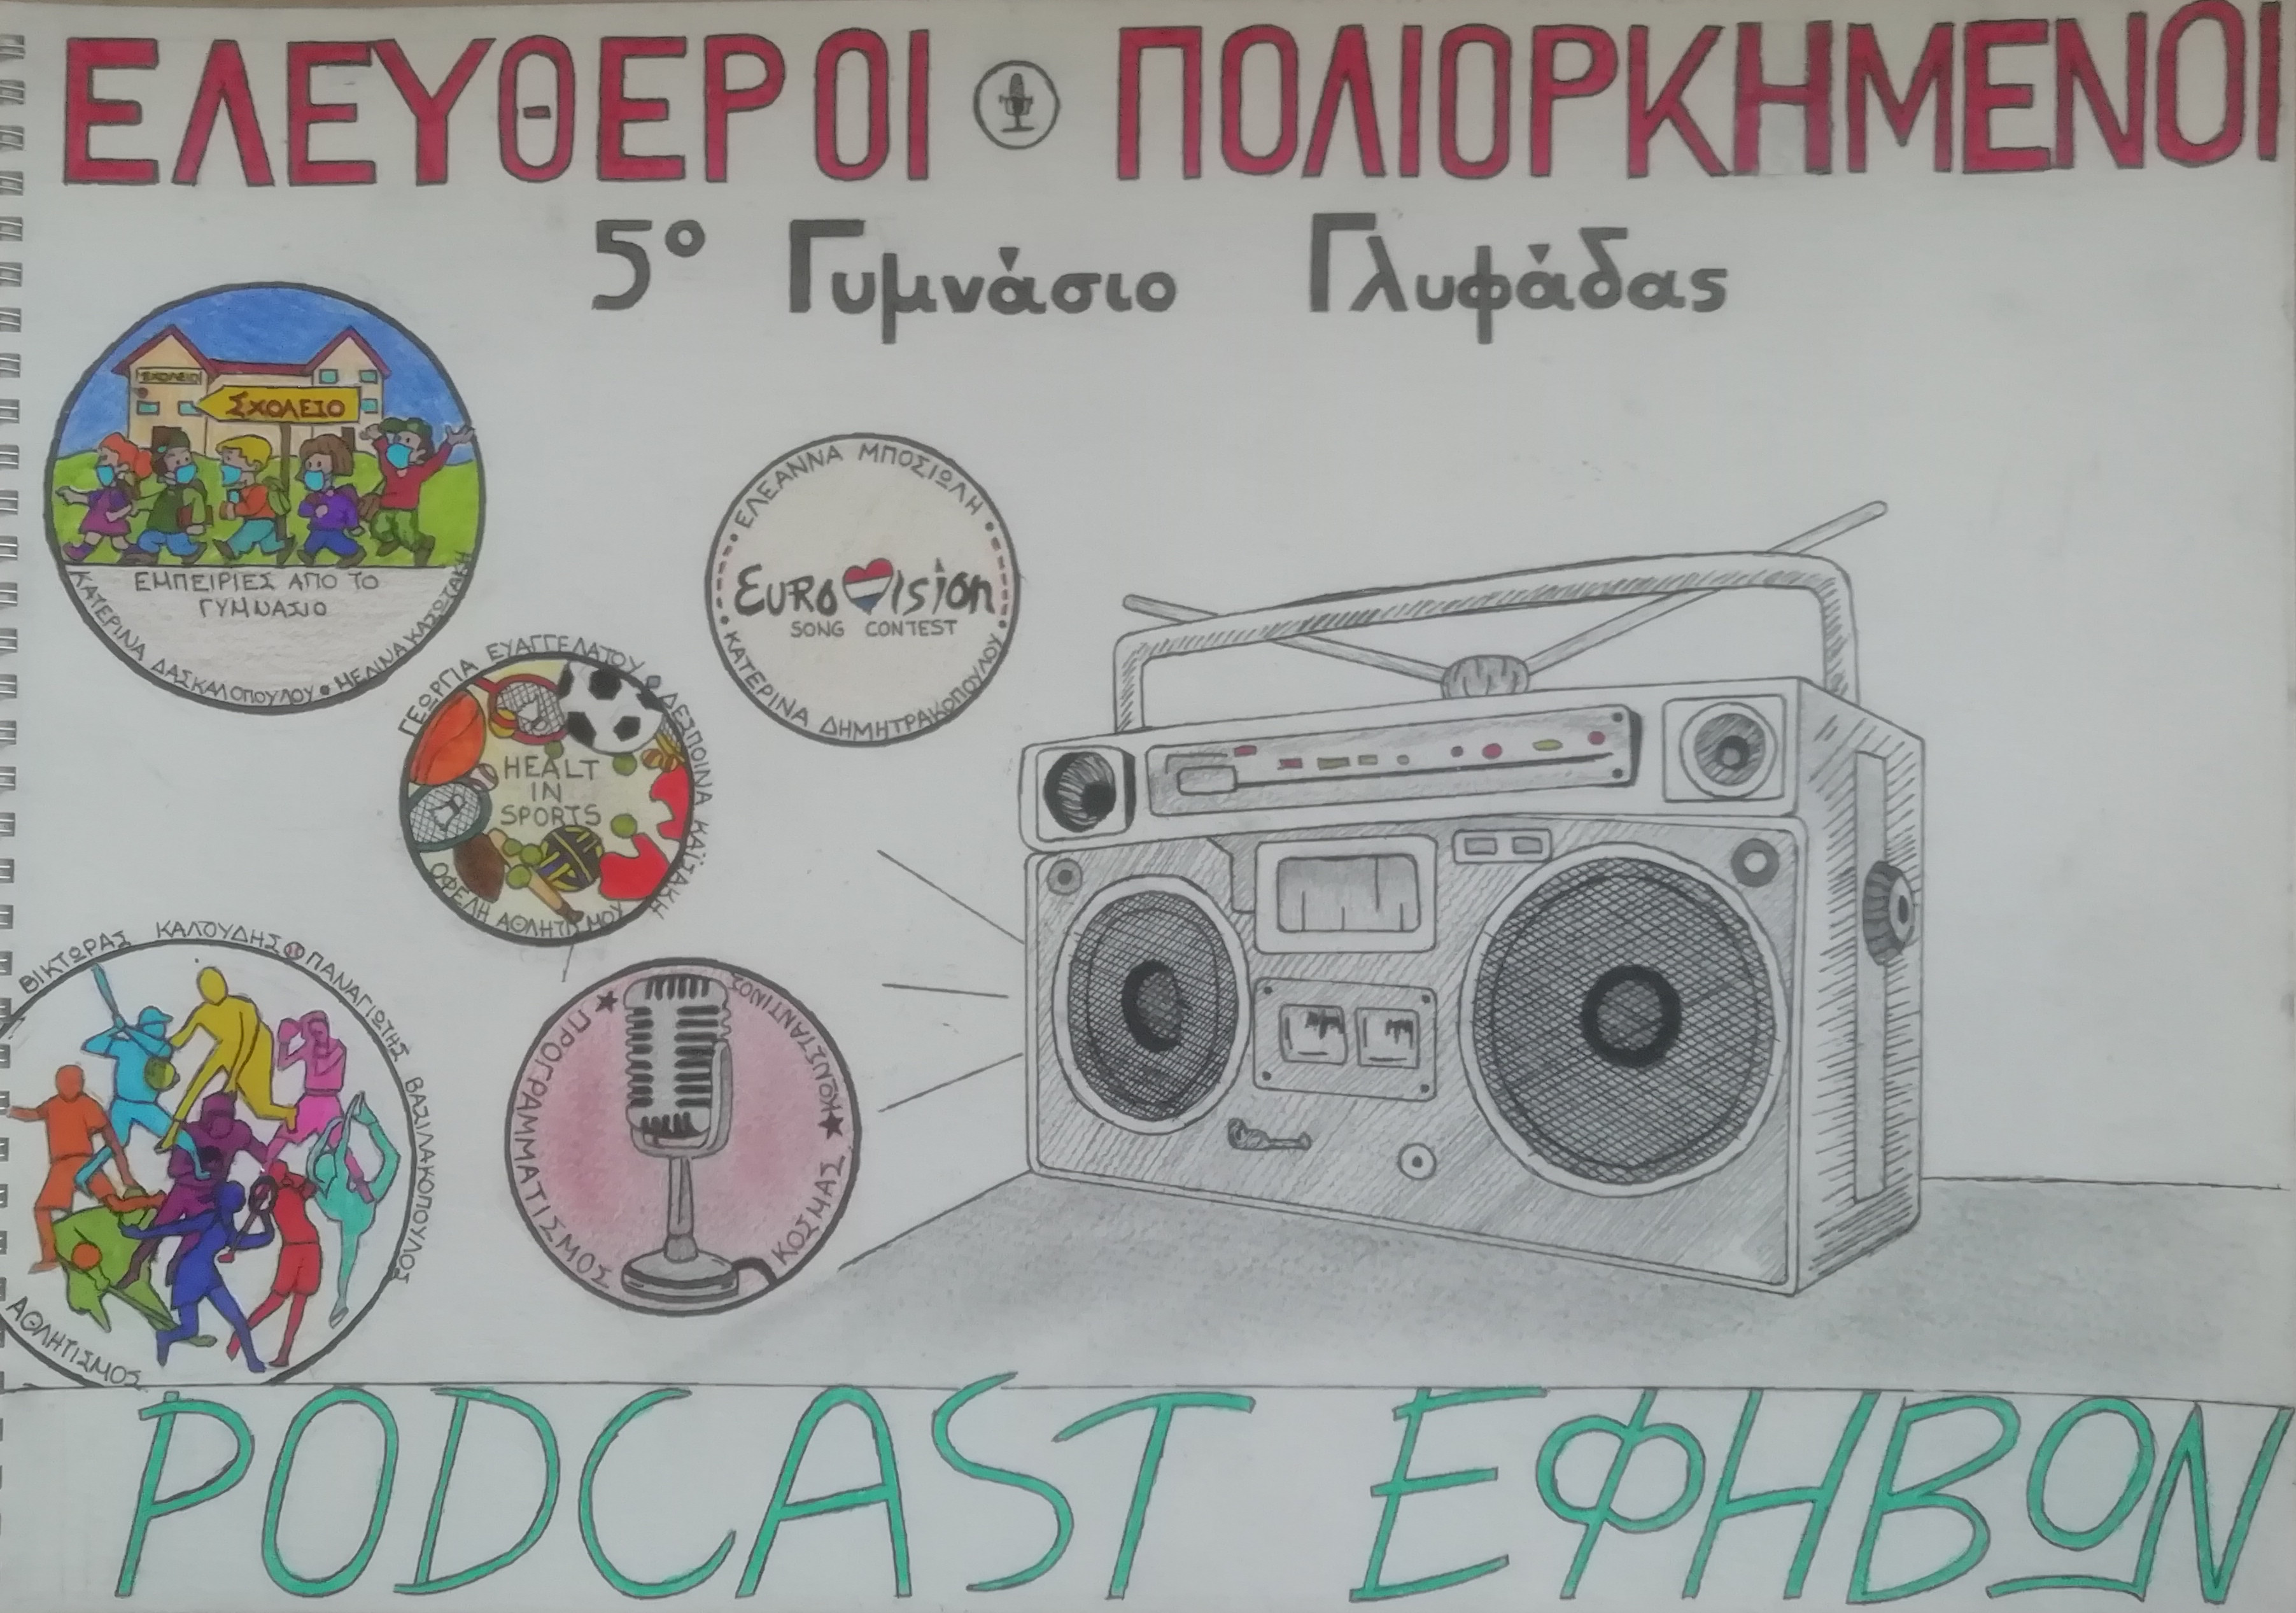 ΕΛΕΥΘΕΡΟΙ ΠΟΛΙΟΡΚΗΜΕΝΟΙ
5° Γυμνάσιο Γλυφάδας
ΣΧΟΛΕΙΟ
ΣΧΟΛΕΙΟ
ΕΜΠΕΙΡΙΕΣ ΑΠΟ ΤΟ
ΓΥΜΝΑΣΙΟ
ΚΑΤΕΡΙΝΑ ΔΑΣΚΑΛΟΠΟΥΛΟΥ • ΜΕΛΙΝΑ ΚΑΣΩΤΑΚΗ
ΕΛΕΑΝΝΑ ΜΠΟΣΙΩΛΗ
EUROVISION
SONG CONTEST
ΚΑΤΕΡΙΝΑ ΔΗΜΗΤΡΑΚΟΠΟΥΛΟΥ
ΓΕΩΡΓΙΑ ΕΥΑΓΓΕΛΑΤΟΥ • ΔΕΣΠΟΙΝΑ ΚΑΪΤΑΚΗ
HEALT
IN
SPORTS
ΟΦΕΛΗ ΑΘΛΗΤΙΣΜΟΥ
ΒΙΚΤΩΡΑΣ ΚΑΛΟΥΔΗΣ ΠΑΝΑΓΙΩΤΗΣ ΒΑΣΙΛΑΚΟΠΟΥΛΟΣ
ΑΘΛΗΤΙΣΜΟΣ
ΠΡΟΓΡΑΜΜΑΤΙΣΜΟΣ
ΚΩΝΣΤΑΝΤΙΝΟΣ
ΚΟΣΜΑΣ
PODCAST ΕΦΗΒΩΝ